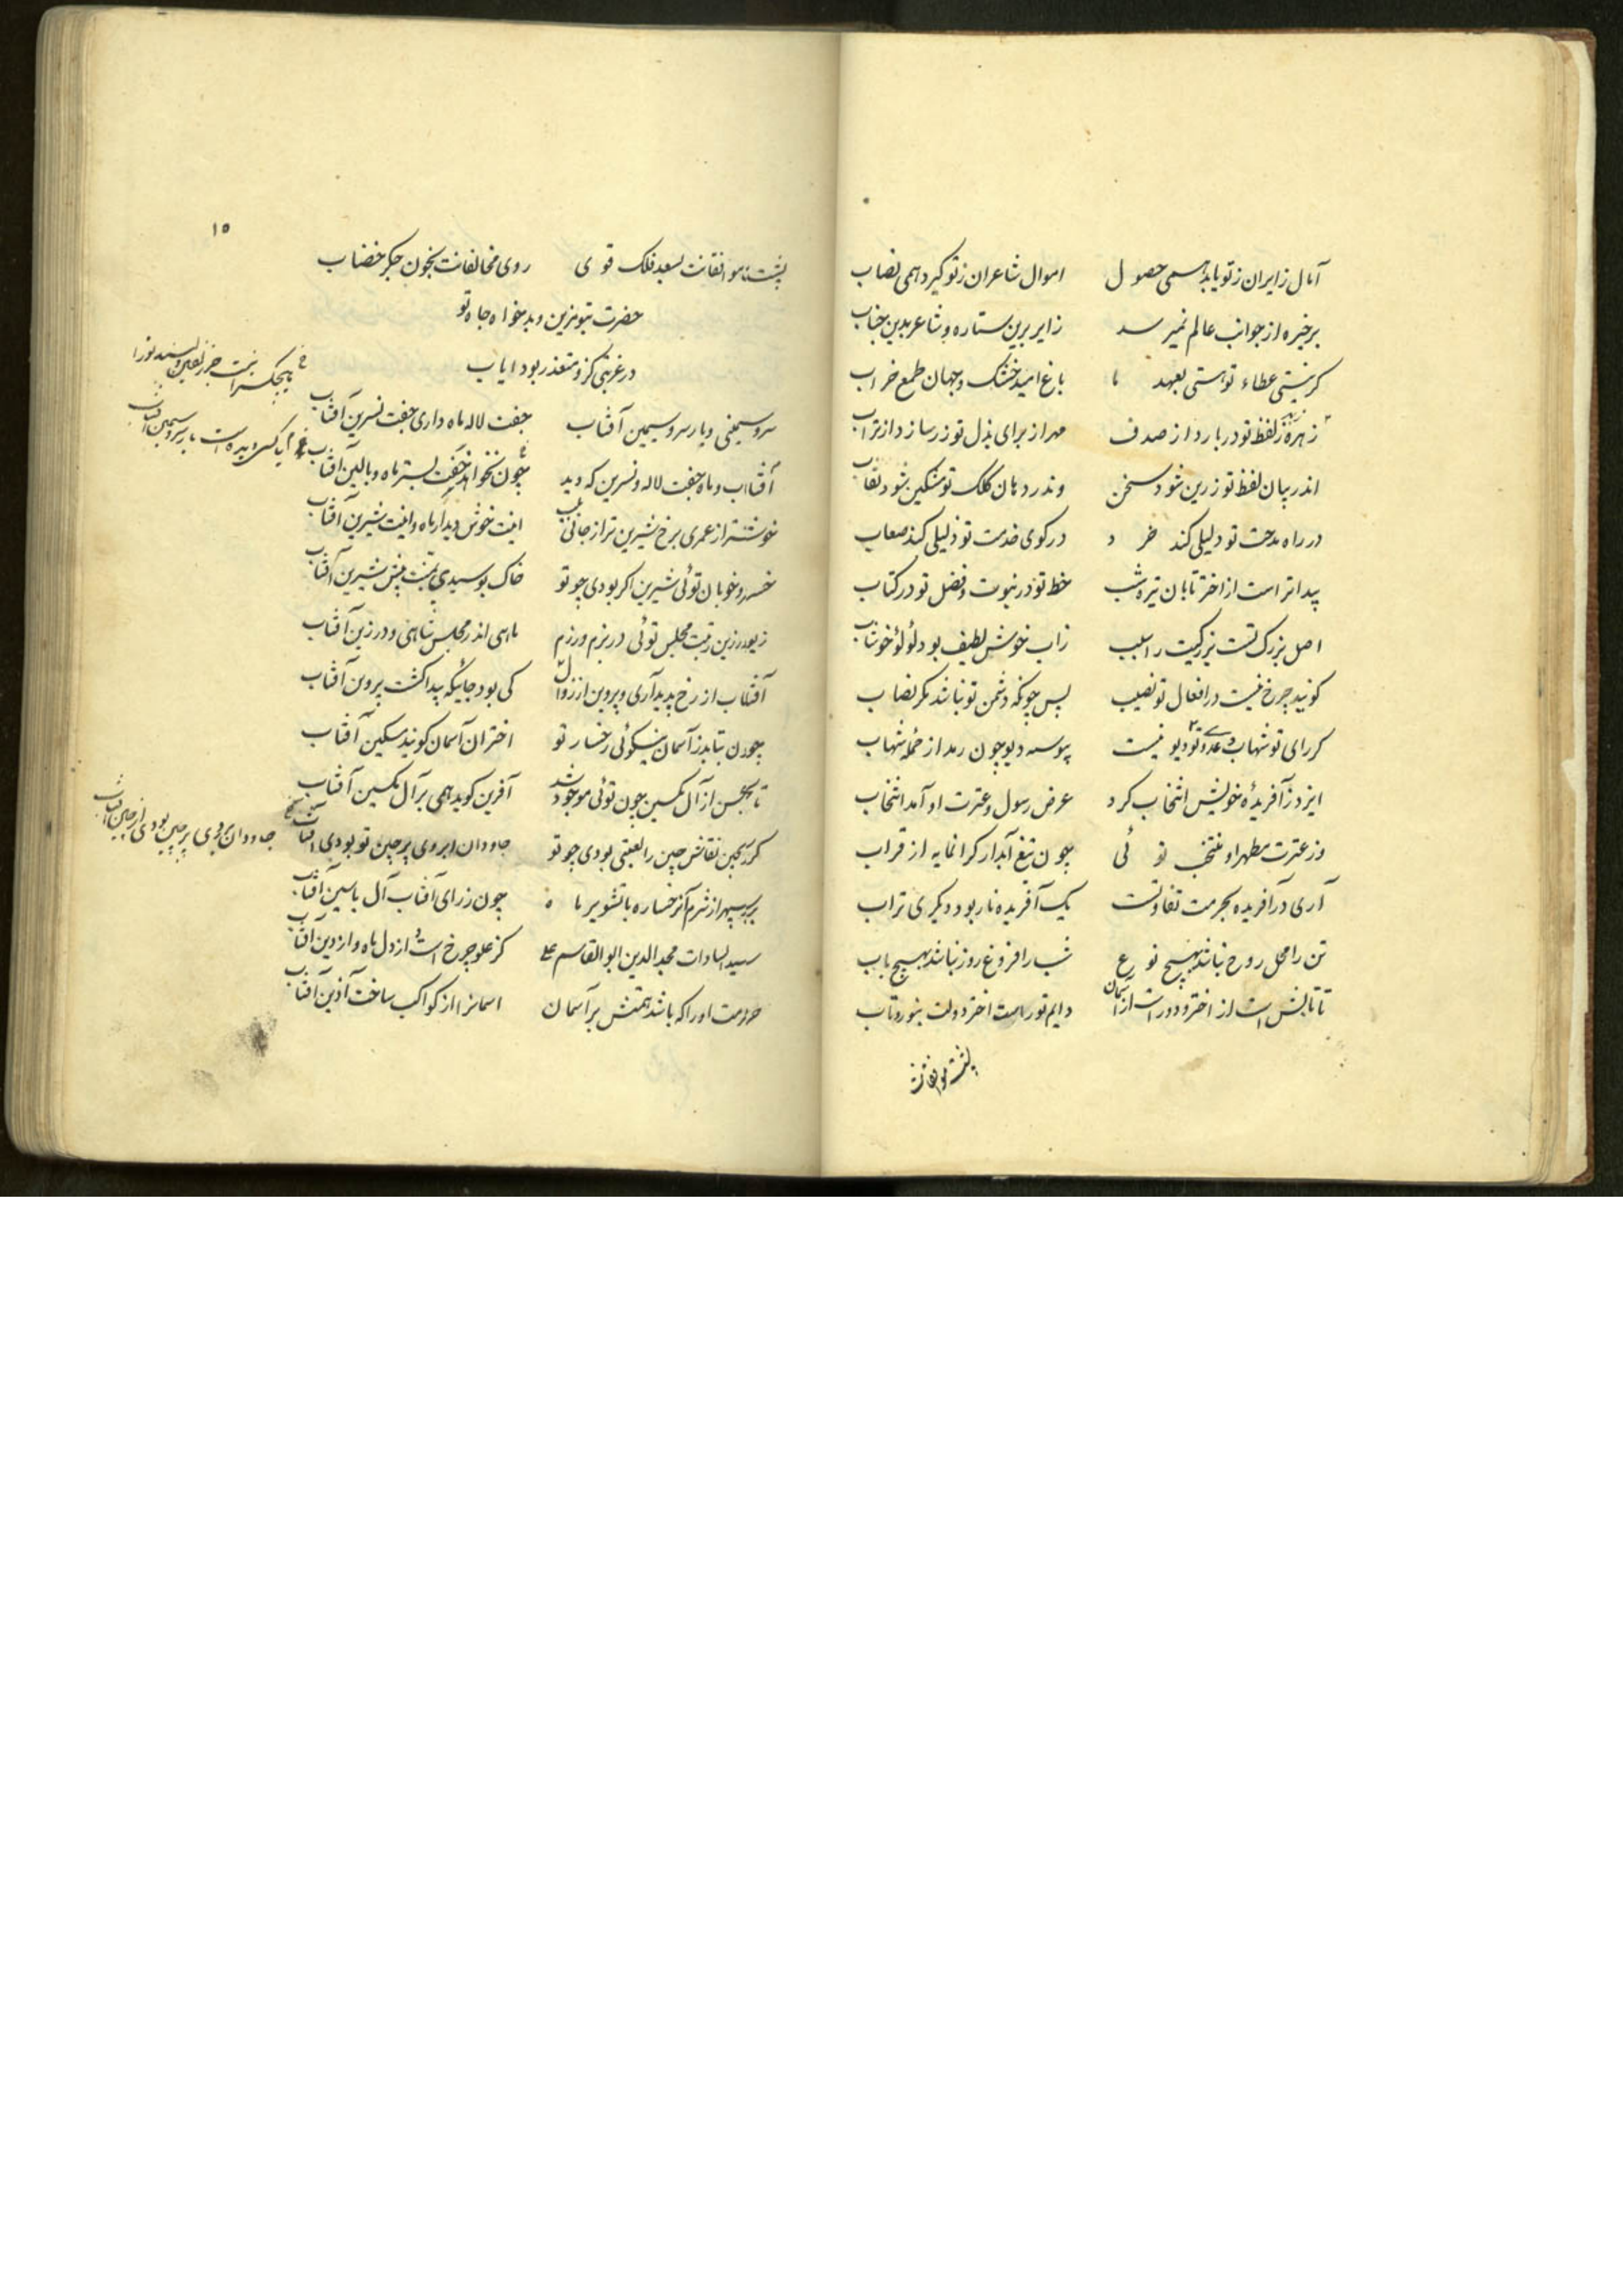 آمال زایران ز تو یابد همی حصول اموال شاعران ز تو گیرد همی نصاب
بر خیره از جوانب عالم نمیرسد زایر برین ستاره و شاعر بدین جناب
کر نیستی عطاء تو هستی بعهد ما باغ امید خشک و جهان طمع خراب
زهره ز لفظ تو در بارد از صدف مهر از برای بذل تو زر سازد از تراب
اندر بیان لفظ تو زرین شود سخن وندر دهان کلک تو مشکین شود نقاب
در راه مدحت تو دلیلی کند خرد در کوی خدمت تو ذلیلی کند صعاب
پیداتر است از اختر تابان تیره شب خط تو در نبوت و فضل تو در کتاب
اصل بزرگ تست بزرگیت را سبب زاب خوش لطیف بود لولو خوشاب
کویند چرخ نیست در افعال تو نصیب پس چونکه دشمن تو نباشد مکر نصاب
کر رای تو شهاب و عدو تو دیو نیست پیوسته دیو چون رمد از حمله شهاب
ایزد ز آفریده خویش انتخاب کرد عرض رسول و عترت او آمد انتخاب
وز عترت مطهر او منتخب توئی چون تیغ آبدار کرانمایه از قراب
آری در آفریده بحرمت تفاوتست یک آفریده نار بود دیکری تراب
تن را محل روح نباشد بهیچ نوع شب را فروغ روز نباشد بهیچ باب
تا تابش است از اختر و دور است از آسمان دایم تو راست اختر دولت بنور و تاب
پشت موافقانت
۱۵
پشت موافقانت بسعد فلک قوی روی مخالفانت بخون جکر خضاب
حضرت بتو مزین و بدخواه جاه تو
در غربتی کزو متعذر بود ایاب
سرو سیمینی و یار سرو سیمین آفتاب جفت لاله ماه داری جفت نسرین آفتاب
آفتاب و ماه جفت لاله و نسرین که دید چون نخواهد خفت بستر ماه و بالین آفتاب
خوشتر از عمری برخ شیرین تر از جانی بلب اینت خوش دیدار ماه و اینت شیرین آفتاب
خسرو خوبان توئی شیرین اکر بودی چو تو خاک بوسیدی به پیش شیرین آفتاب
زیور زین و زینت مجلس توئی در بزم و رزم ماهی اندر مجلس شاهی و در زین آفتاب
آفتاب از رخ پدید آری و پروین از زوال کی بود جائیکه پیدا کشت پروین آفتاب
چون بتابد ز آسمان نیکوئی رخسار تو اختران آسمان کویند مسکین آفتاب
تا بحسن از آل تکسین چون توئی موجود شد آفرین کوید همی بر آل تکسین آفتاب
کر بچین نقاش چین را لعبتی بودی چو تو جاودان ابروی پرچین تو بودی آفتاب
بر سپهر از شرم آن رخساره با تشویر ماه چون ز رای آفتاب آل یاسین آفتاب
سید السادات مجد الدین ابوالقاسم علی کز علو چرخ است و از دل ماه و از دین آفتاب
حرمت او را که باشد همتش بر آسمان آسمانرا از کواکب ساخت آذین آفتاب